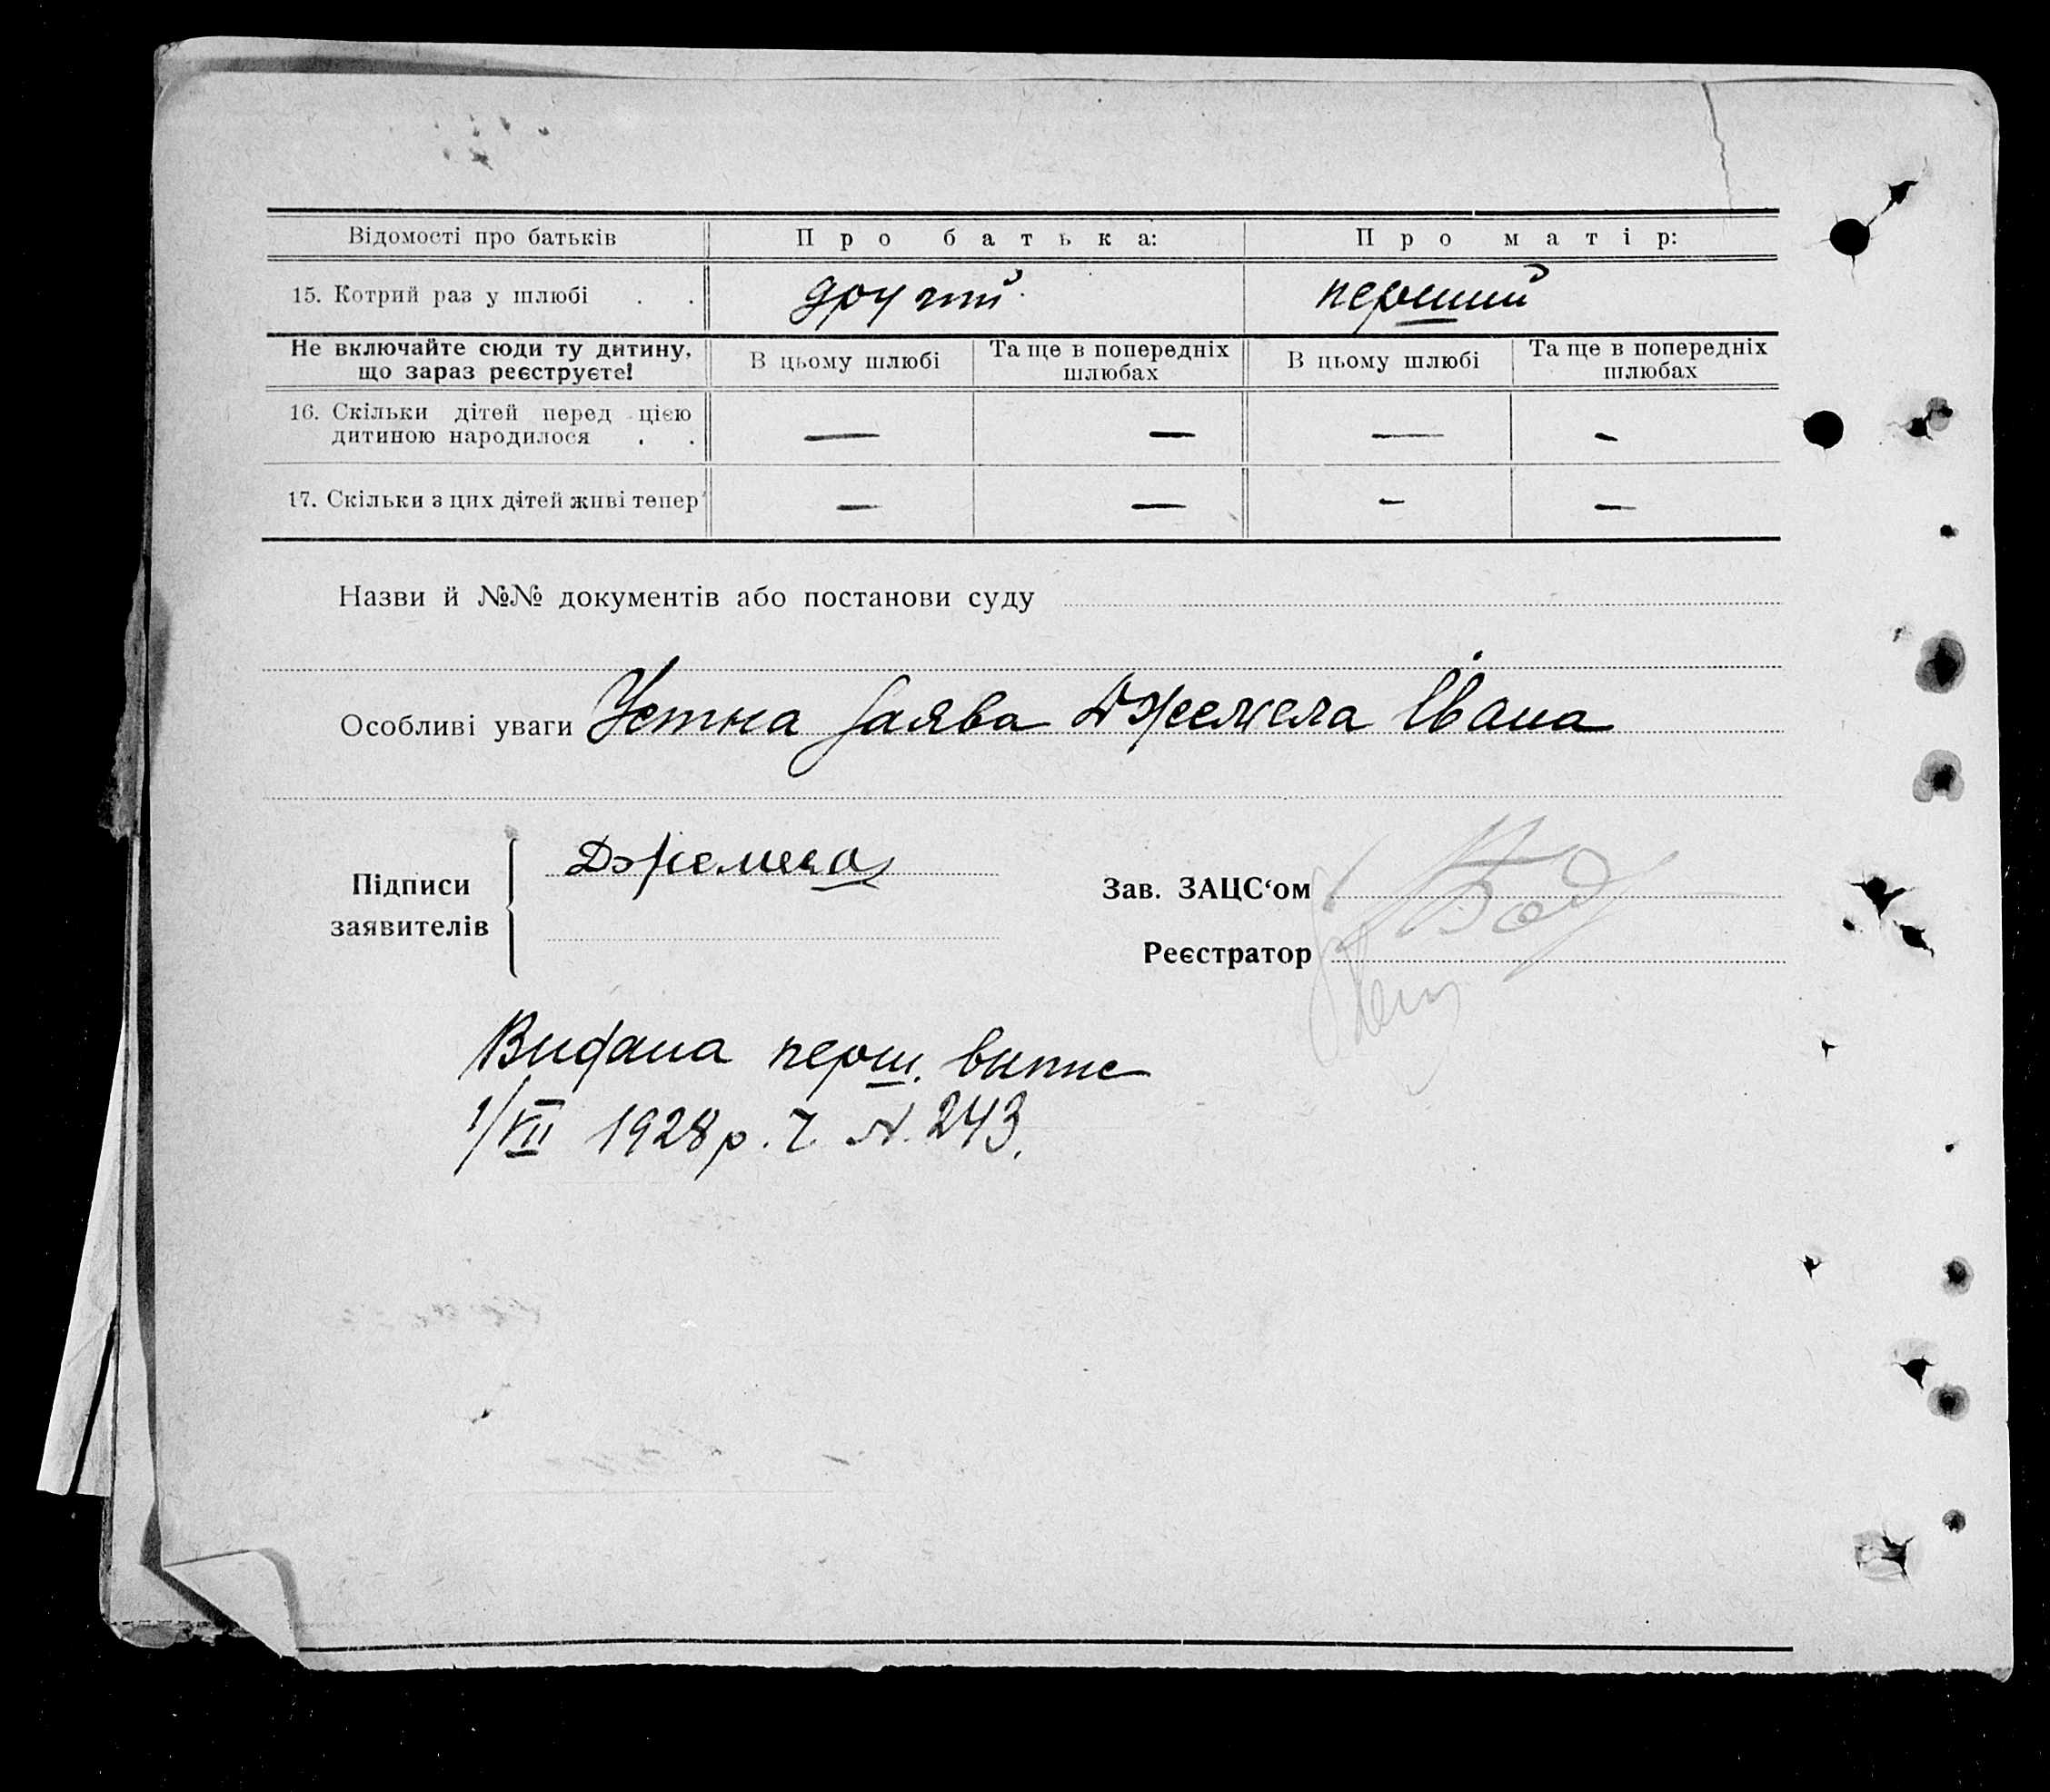 Відомості про батьків Про батька: Про матір:
15. Котрий раз у шлюбі . . другий перший
Не включайте сюди ту дитину, що зараз реєструєте! В цьому шлюбі Та ще в попередніх шлюбах В цьому шлюбі Та ще в попередніх шлюбах
16. Скільки дітей перед цією
дитиною народилося . . — — — —
17. Скільки з цих дітей живі тепер — — — —
Назви й №№ документів або постанови суду
Особливі уваги Устна заява Джемела Івана
Підписи заявителів Джемела
Зав. ЗАЦС‘ом
Реєстратор
Видана перш. выпис
1/VII 1928 р. Ч. N. 243.